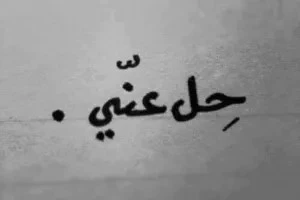 حِل عنّي .